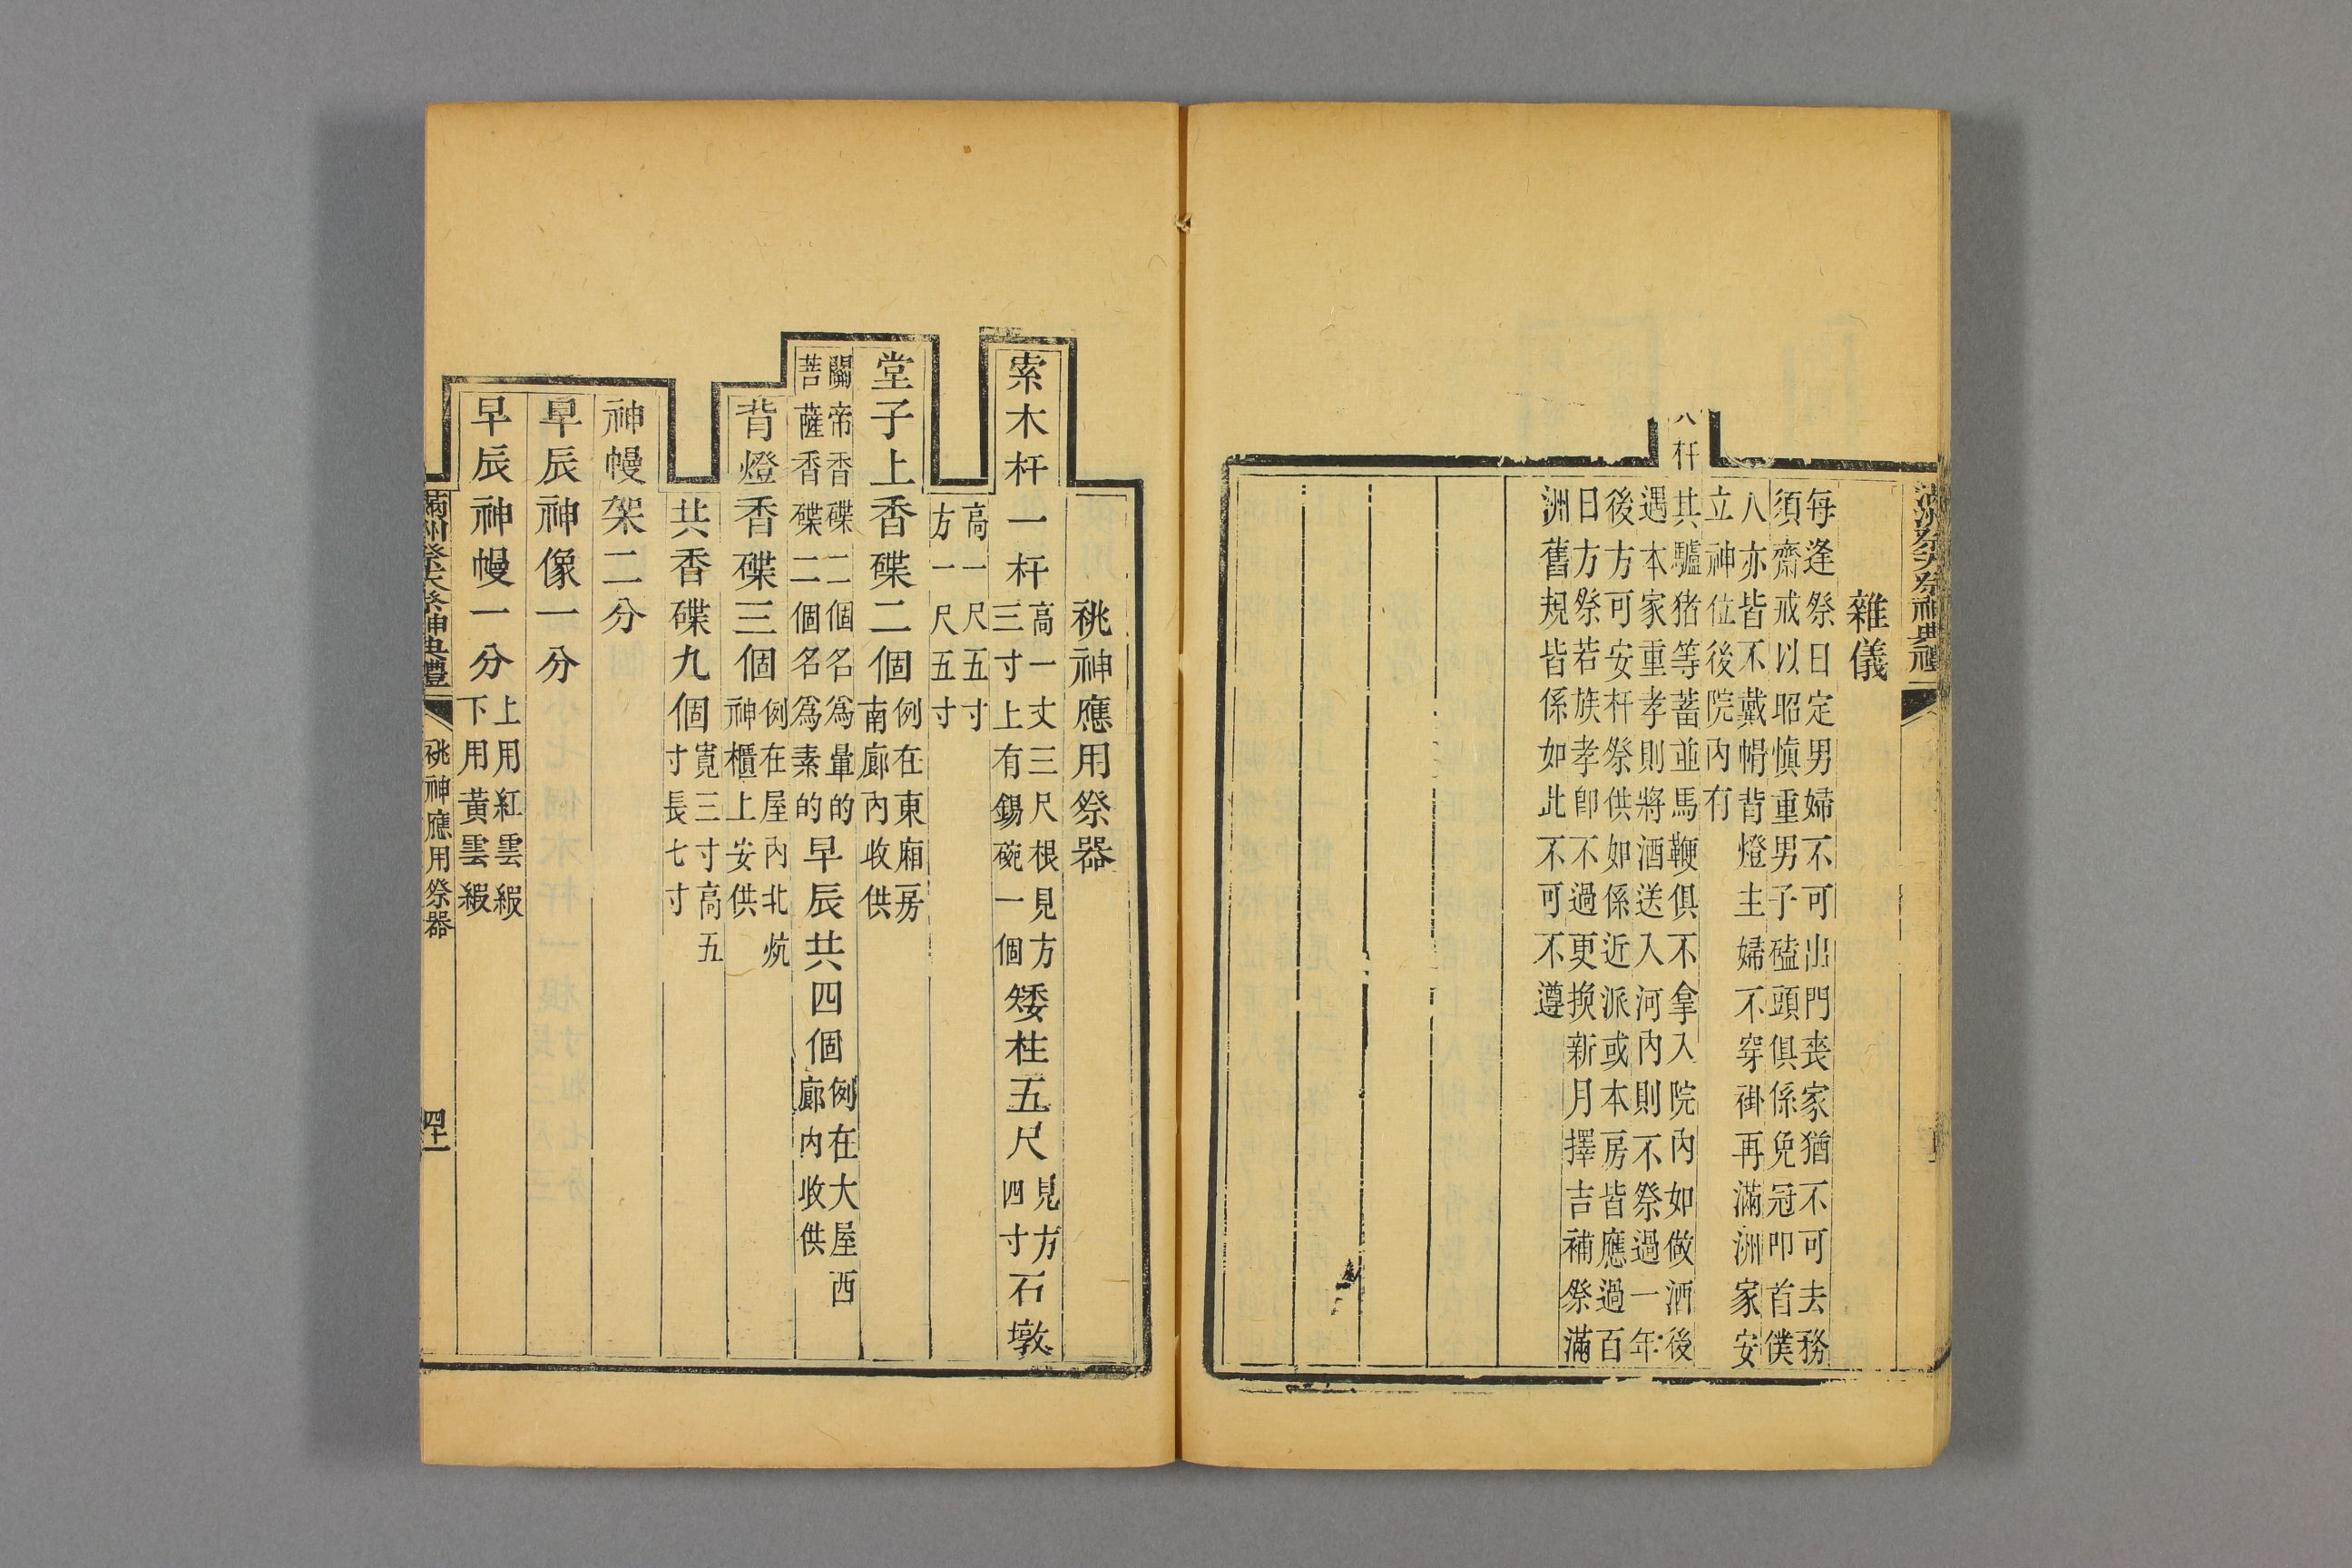 滿洲祭天祭神典禮
雜儀
每逢祭日定男婦不可出門喪家猶不可去務
須齋戒以昭慎重男子磕頭俱係免冠叩首僕
人亦皆不戴帽背燈主婦不穿褂再滿洲家安
立神位後院內有
杆其驢猪等蓄並馬鞭俱不拿入院內如做酒後
遇本家重孝則將酒送入河內則不祭過一年
後方可安杆祭供如係近派或本房皆應過百
日方祭若族孝卽不過更換新月擇吉補祭滿
洲舊規皆係如此不可不遵
祧神應用祭器
索木杆一杆高一丈三尺根見方三寸上有錫碗一個矮柱五尺見方四寸石墩
高一尺五寸方一尺五寸
堂子上香碟二個例在東廂房南廊內收供
關帝香碟二個名爲暈的菩薩香碟二個名爲素的早辰共四個例在大屋西廊內收供
背燈香碟三個例在屋內北炕神櫃上安供
共香碟九個寬三寸高五寸長七寸
神幔架二分
早辰神像一分
早辰神幔一分上用紅雲緞下用黃雲緞
滿洲祭天祭神典禮
祧神應用祭器
四十一